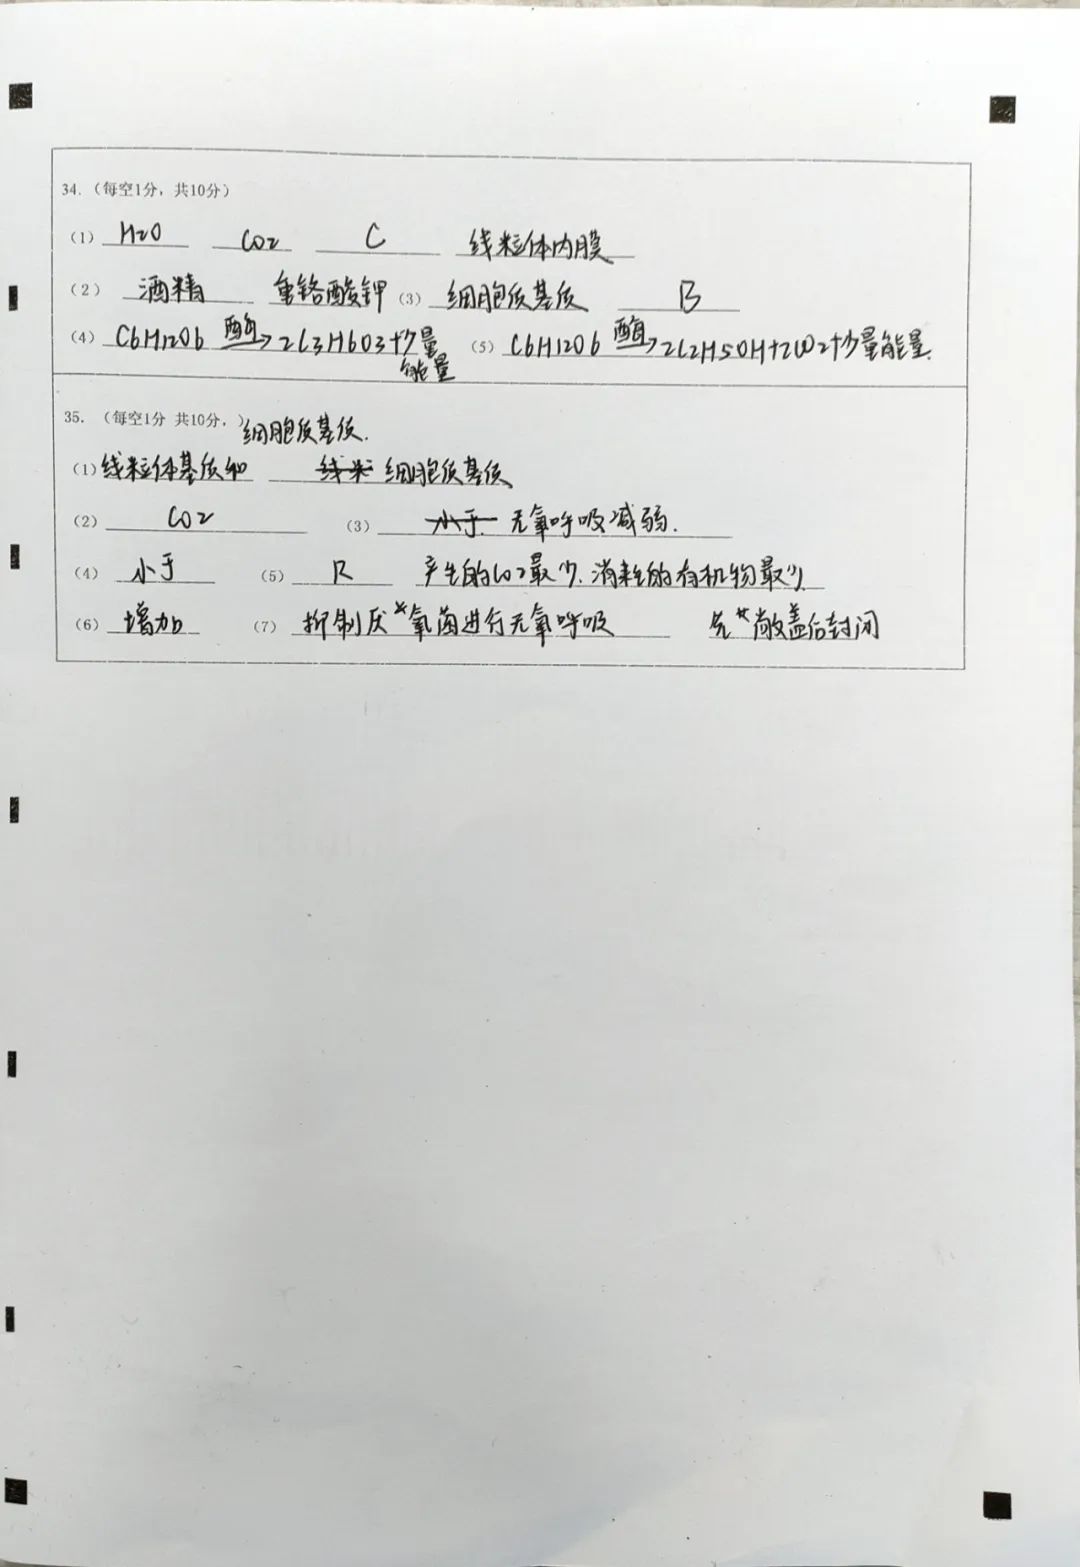 34. （每空1分，共10分）
（1） H2O CO2 C 线粒体内膜
（2） 酒精 重铬酸钾 （3） 细胞质基质 B
（4） C6H12O6 酶→ 2C3H6O3+少量能量 （5） C6H12O6 酶→ 2C2H5OH+2CO2+少量能量.
35. （每空1分 共10分，）
（1） 线粒体基质和细胞质基质. 细胞质基质
（2） CO2 （3） 无氧呼吸减弱.
（4） 小于 （5） R 产生的CO2最少.消耗的有机物最少
（6） 增加 （7） 抑制厌氧菌进行无氧呼吸 先敞盖后封闭